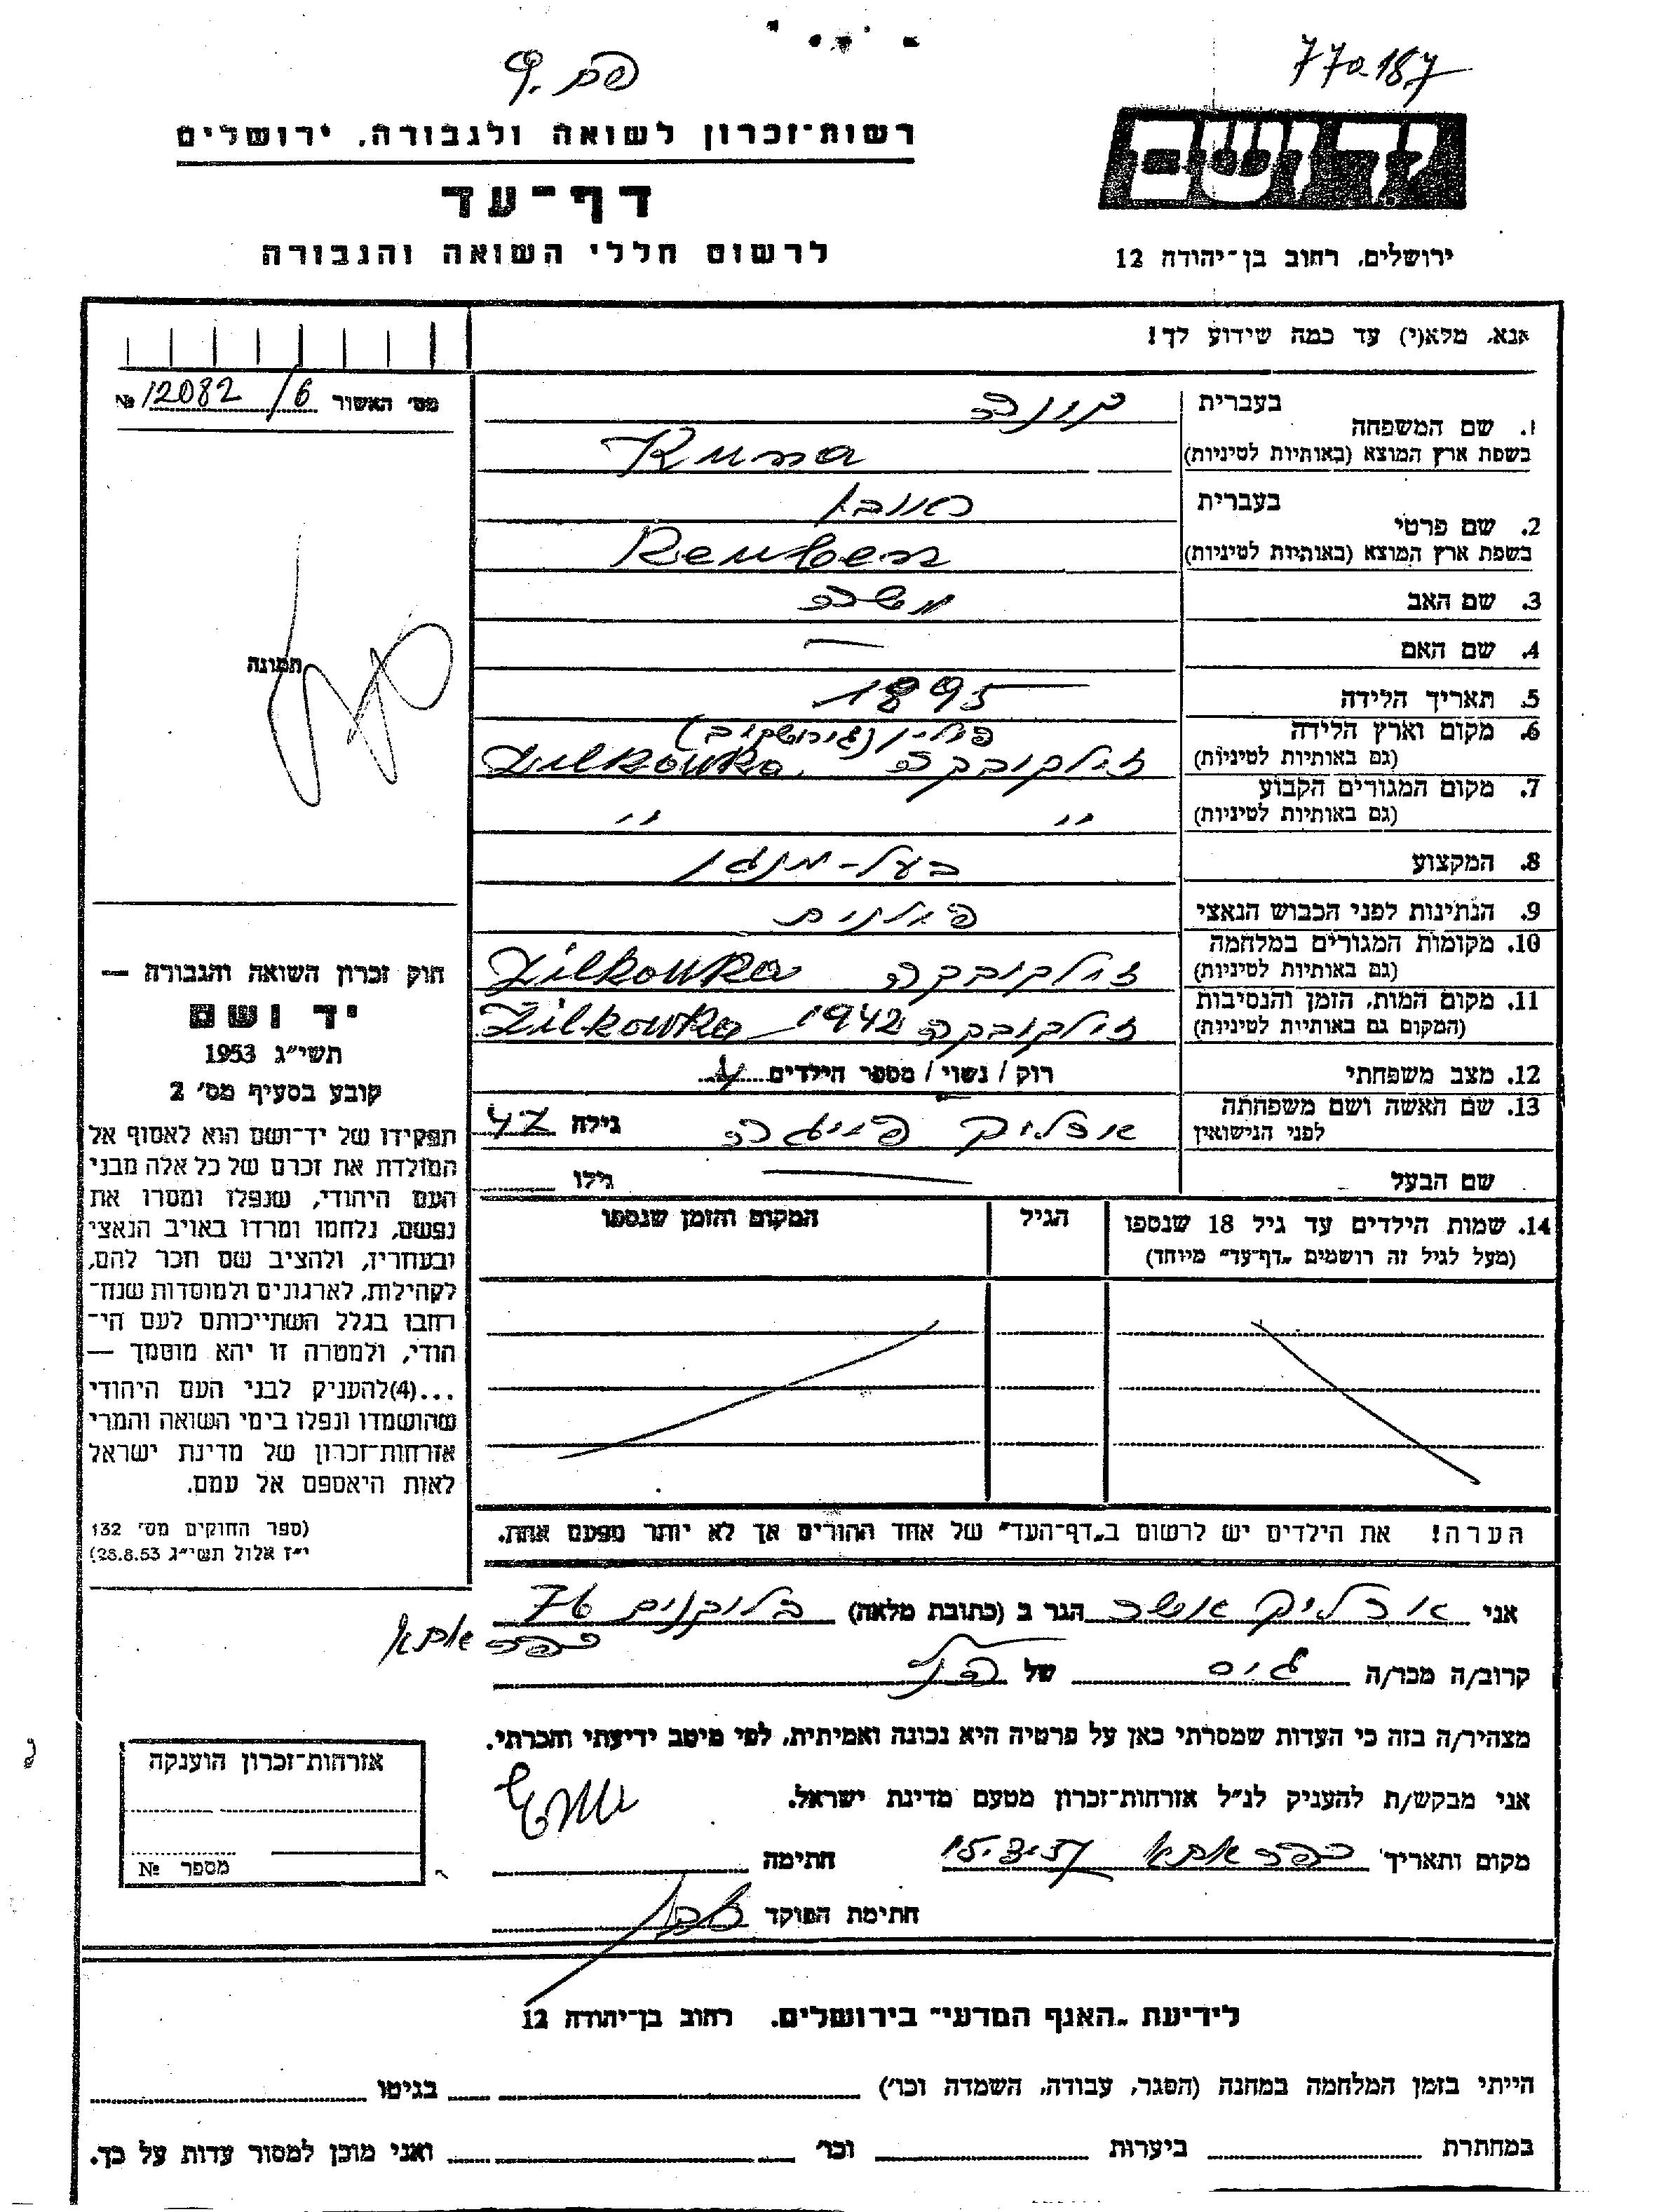 770.187
רשות־זכרון לשואה ולגבורה, ירושלים
ידושם
דף־עד
לרשום חללי השואה והגבורה
ירושלים, רחוב בן־יהודה 12
אנא, מלא(י) עד כמה שידוע לך!
מס' האשור 12082/6 №
בעברית קונה
1. שם המשפחה
בשפת ארץ המוצא (באותיות לטיניות) Kuna
בעברית ראובן
2. שם פרטי
בשפת ארץ המוצא (באותיות לטיניות) Reuben
3. שם האב משה
4. שם האם —
5. תאריך הלידה 1895
6. מקום וארץ הלידה פולין
(גם באותיות לטיניות) זילקובקה Zilkowka
7. מקום המגורים הקבוע
(גם באותיות לטיניות) " "
8. המקצוע בעל-
9. הנתינות לפני הכבוש הנאצי פולנית
10. מקומות המגורים במלחמה
(גם באותיות לטיניות) זילקובקה Zilkowka
11. מקום המות, הזמן והנסיבות
(המקום גם באותיות לטיניות) זילקובקה 1942 Zilkowka
12. מצב משפחתי רוק / נשוי / מספר הילדים 4
13. שם האשה ושם משפחתה
לפני הנישואין פייגה גילה 47
שם הבעל — גילו
14. שמות הילדים עד גיל 18 שנספו הגיל המקום והזמן שנספו
(מעל לגיל זה רושמים „דף־עד" מיוחד)
הערה! את הילדים יש לרשום ב„דף־העד" של אחד ההורים אך לא יותר מפעם אחת.
תמונה
חוק זכרון השואה והגבורה —
יד ושם
תשי"ג 1953
קובע בסעיף מס' 2
תפקידו של יד־ושם הוא לאסוף אל
המולדת את זכרם של כל אלה מבני
העם היהודי, שנפלו ומסרו את
נפשם, נלחמו ומרדו באויב הנאצי
ובעוזריו, ולהציב שם וזכר להם,
לקהילות, לארגונים ולמוסדות שנח־
רבו בגלל השתייכותם לעם הי־
הודי, ולמטרה זו יהא מוסמך —
...(4) להעניק לבני העם היהודי
שהושמדו ונפלו בימי השואה והמרי
אזרחות־זכרון של מדינת ישראל
לאות היאספם אל עמם.
(ספר החוקים מס' 132
י"ז אלול תשי"ג 28.8.53)
אני אשר הגר ב (כתובת מלאה) בלוקונים 76
כפר אתא
קרוב/ה מכר/ה גיס של הנ"ל
מצהיר/ה בזה כי העדות שמסרתי כאן על פרטיה היא נכונה ואמיתית, לפי מיטב ידיעתי והכרתי.
אני מבקש/ת להעניק לנ"ל אזרחות־זכרון מטעם מדינת ישראל.
מקום ותאריך כפר אתא 15.3.57 חתימה
חתימת הפוקד
אזרחות־זכרון הוענקה
מספר №
לידיעת „האגף המדעי" בירושלים. רחוב בן־יהודה 12
הייתי בזמן המלחמה במחנה (הסגר, עבודה, השמדה וכו') בגיטו
במחתרת ביערות וכו' ואני מוכן למסור עדות על כך.